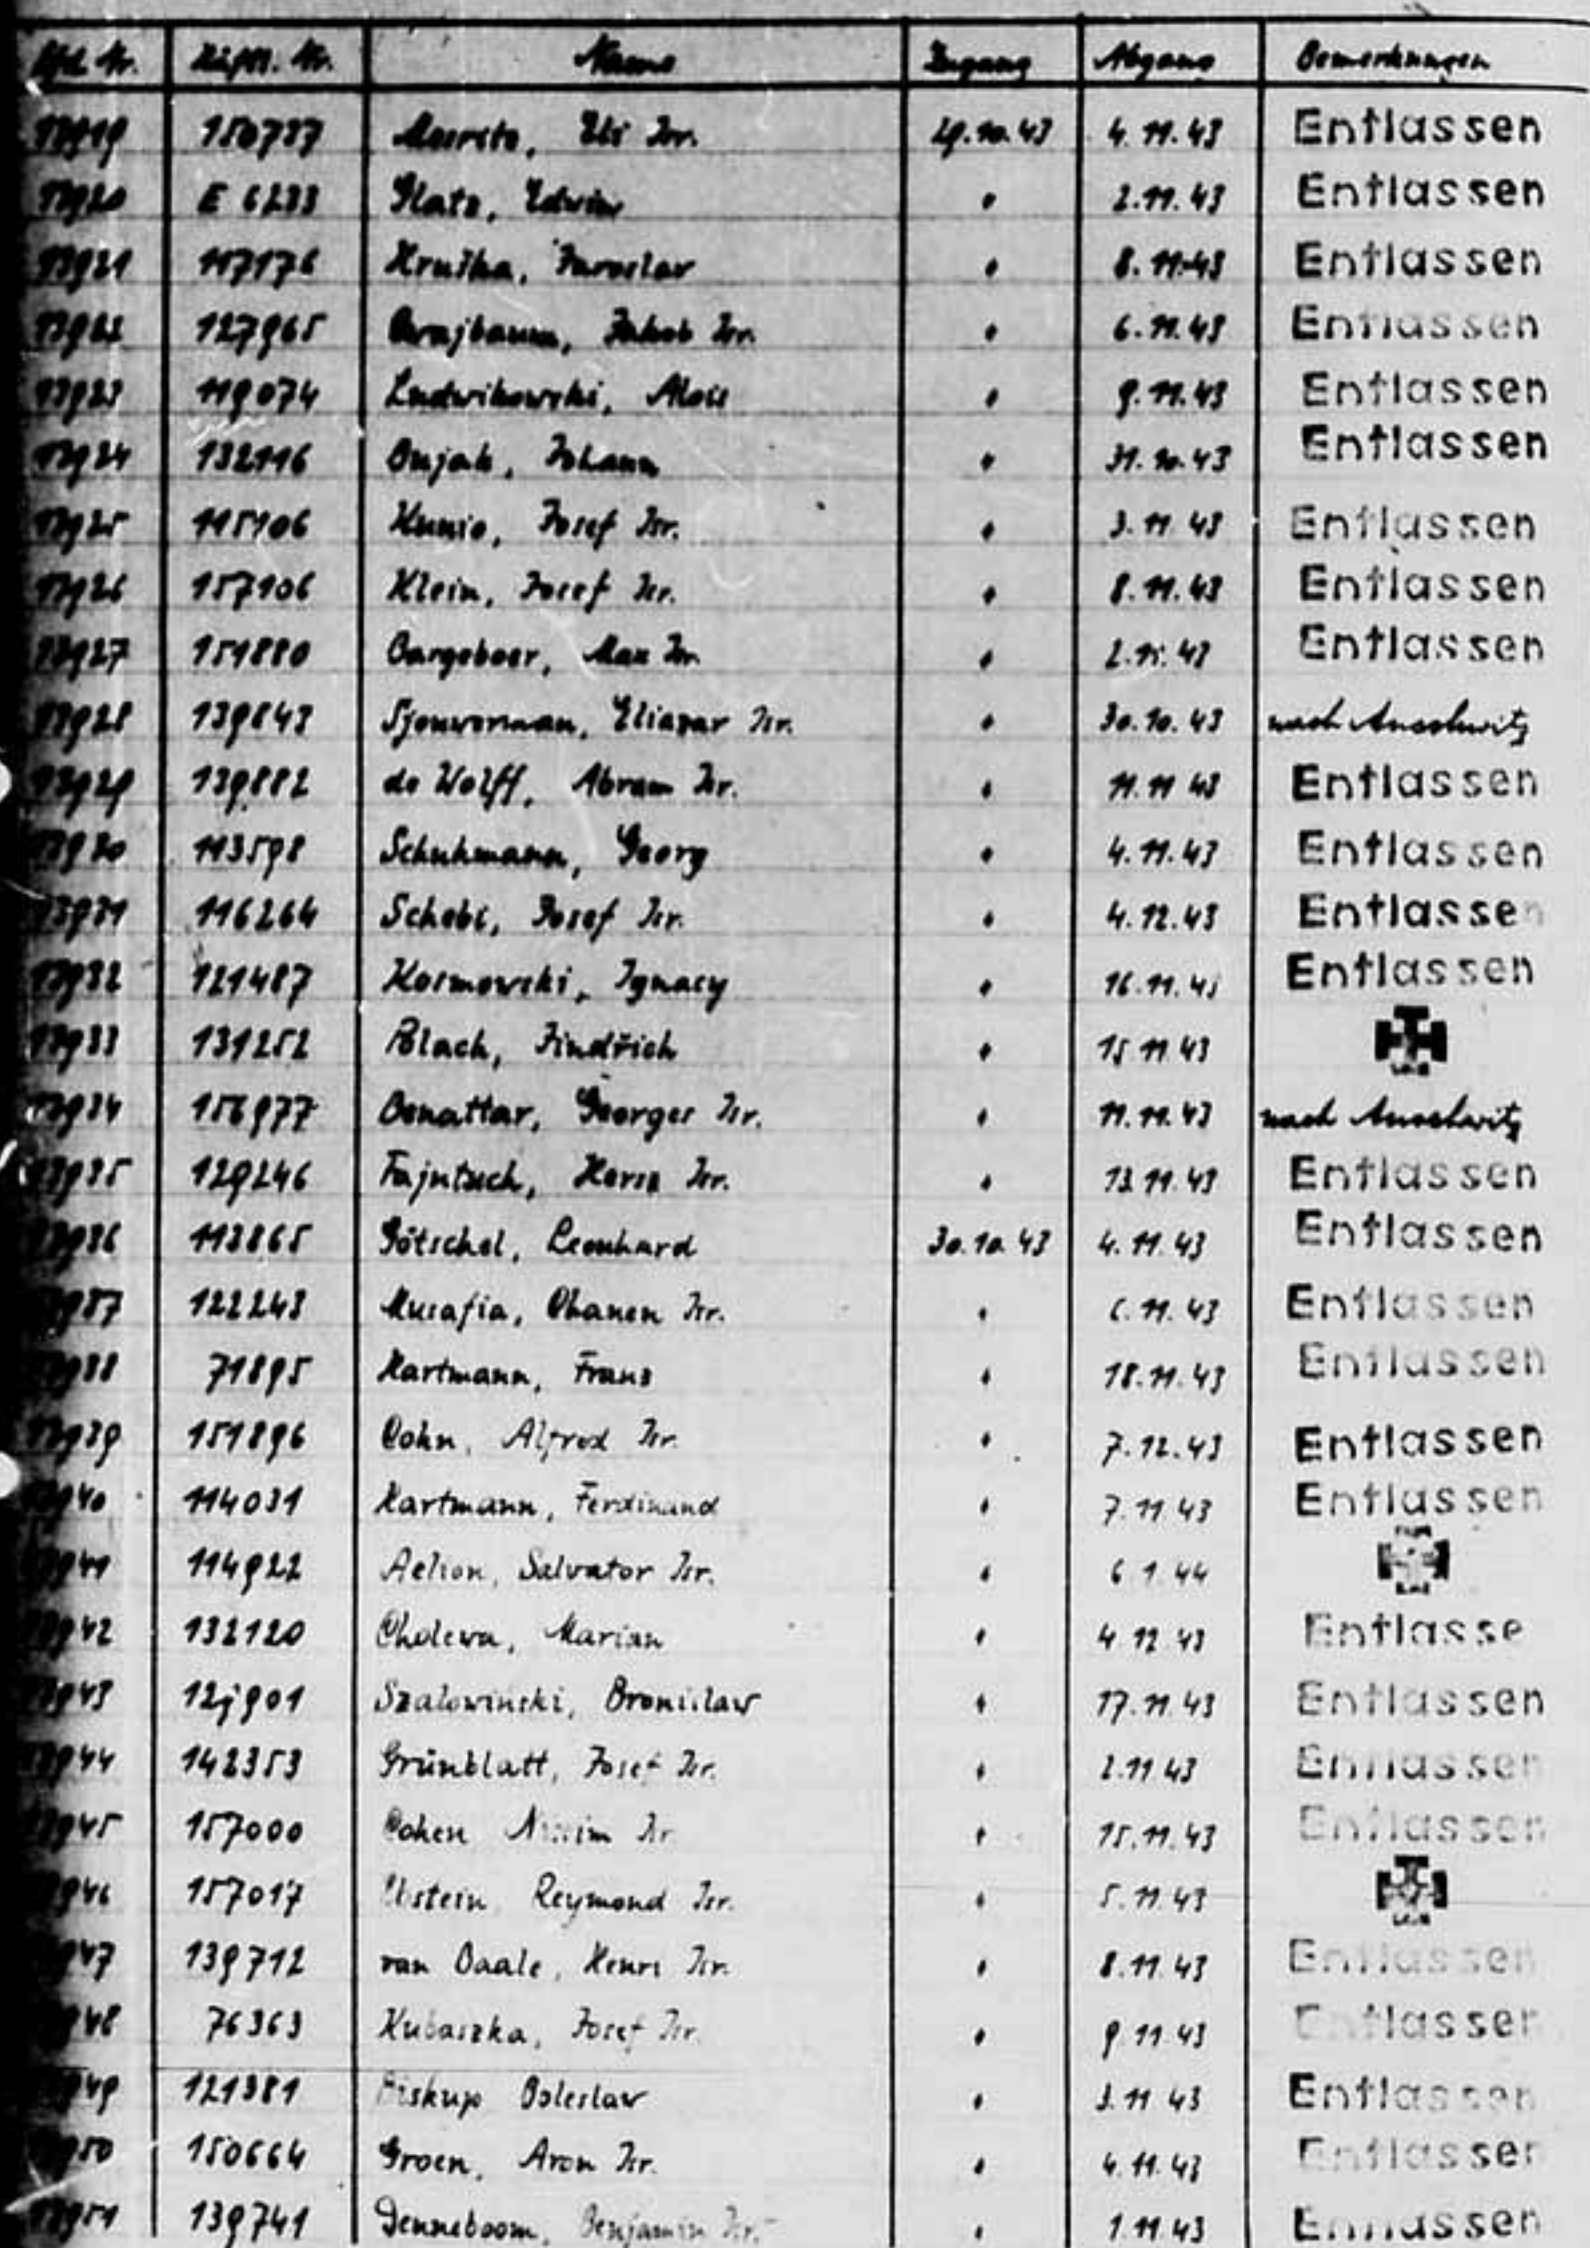 Lfd. Nr. Häftl. Nr. Name Zugang Abgang Bemerkungen
13919 150737 Morrito, Eli Isr. 29.10.43 4.11.43 Entlassen
13920 E 6233 Glatz, Edwin " 2.11.43 Entlassen
13921 117176 Hruška, Jaroslav " 8.11.43 Entlassen
13922 127965 Jakob Isr. " 6.11.43 Entlassen
13923 119074 Ludwikowski, Alois " 9.11.43 Entlassen
13924 132116 Bujak, Johann " 31.10.43 Entlassen
13925 115106 Kunio, Josef Isr. " 3.11.43 Entlassen
13926 157106 Klein, Josef Isr. " 8.11.43 Entlassen
13927 151880 Bargeboer, Max Isr. " 2.11.43 Entlassen
13928 139843 Sjouwerman, Eliazar Isr. " 30.10.43 nach Auschwitz
13929 139882 de Wolff, Abram Isr. " 11.11.43 Entlassen
13930 113598 Schuhmann, Georg " 4.11.43 Entlassen
13931 116264 Schebi, Josef Isr. " 4.12.43 Entlassen
13932 121487 Kosmowski, Ignacy " 16.11.43 Entlassen
13933 131252 Blach, Jindřich " 15.11.43
13934 156977 Benattar, Georges Isr. " 11.11.43 nach Auschwitz
13935 129246 Fajntuch, Hersz Isr. " 13.11.43 Entlassen
13936 113865 Götschel, Leonhard 30.10.43 4.11.43 Entlassen
13937 122243 Musafia, Chanen Isr. " 6.11.43 Entlassen
13938 71895 Hartmann, Franz " 18.11.43 Entlassen
13939 151896 Cohn, Alfred Isr. " 7.12.43 Entlassen
13940 114031 Hartmann, Ferdinand " 7.11.43 Entlassen
13941 114922 Aelion, Salvator Isr. " 6.1.44
13942 132120 Cholewa, Marian " 4.12.43 Entlasse
13943 12j901 Szalowinski, Bronislaw " 17.11.43 Entlassen
13944 142353 Grünblatt, Josef Isr. " 2.11.43 Entlassen
13945 157000 Cohen Isr. " 15.11.43 Entlassen
13946 157017 Reymond Isr. " 5.11.43
13947 139712 van Baale, Henri Isr. " 8.11.43 Entlassen
13948 76363 Kubaszka, Josef Isr. " 9.11.43 Entlassen
13949 121381 Biskup Boleslaw " 3.11.43 Entlassen
13950 150664 Groen, Aron Isr. " 4.11.43 Entlassen
13951 139741 Denneboom, Benjamin Isr. " 1.11.43 Entlassen